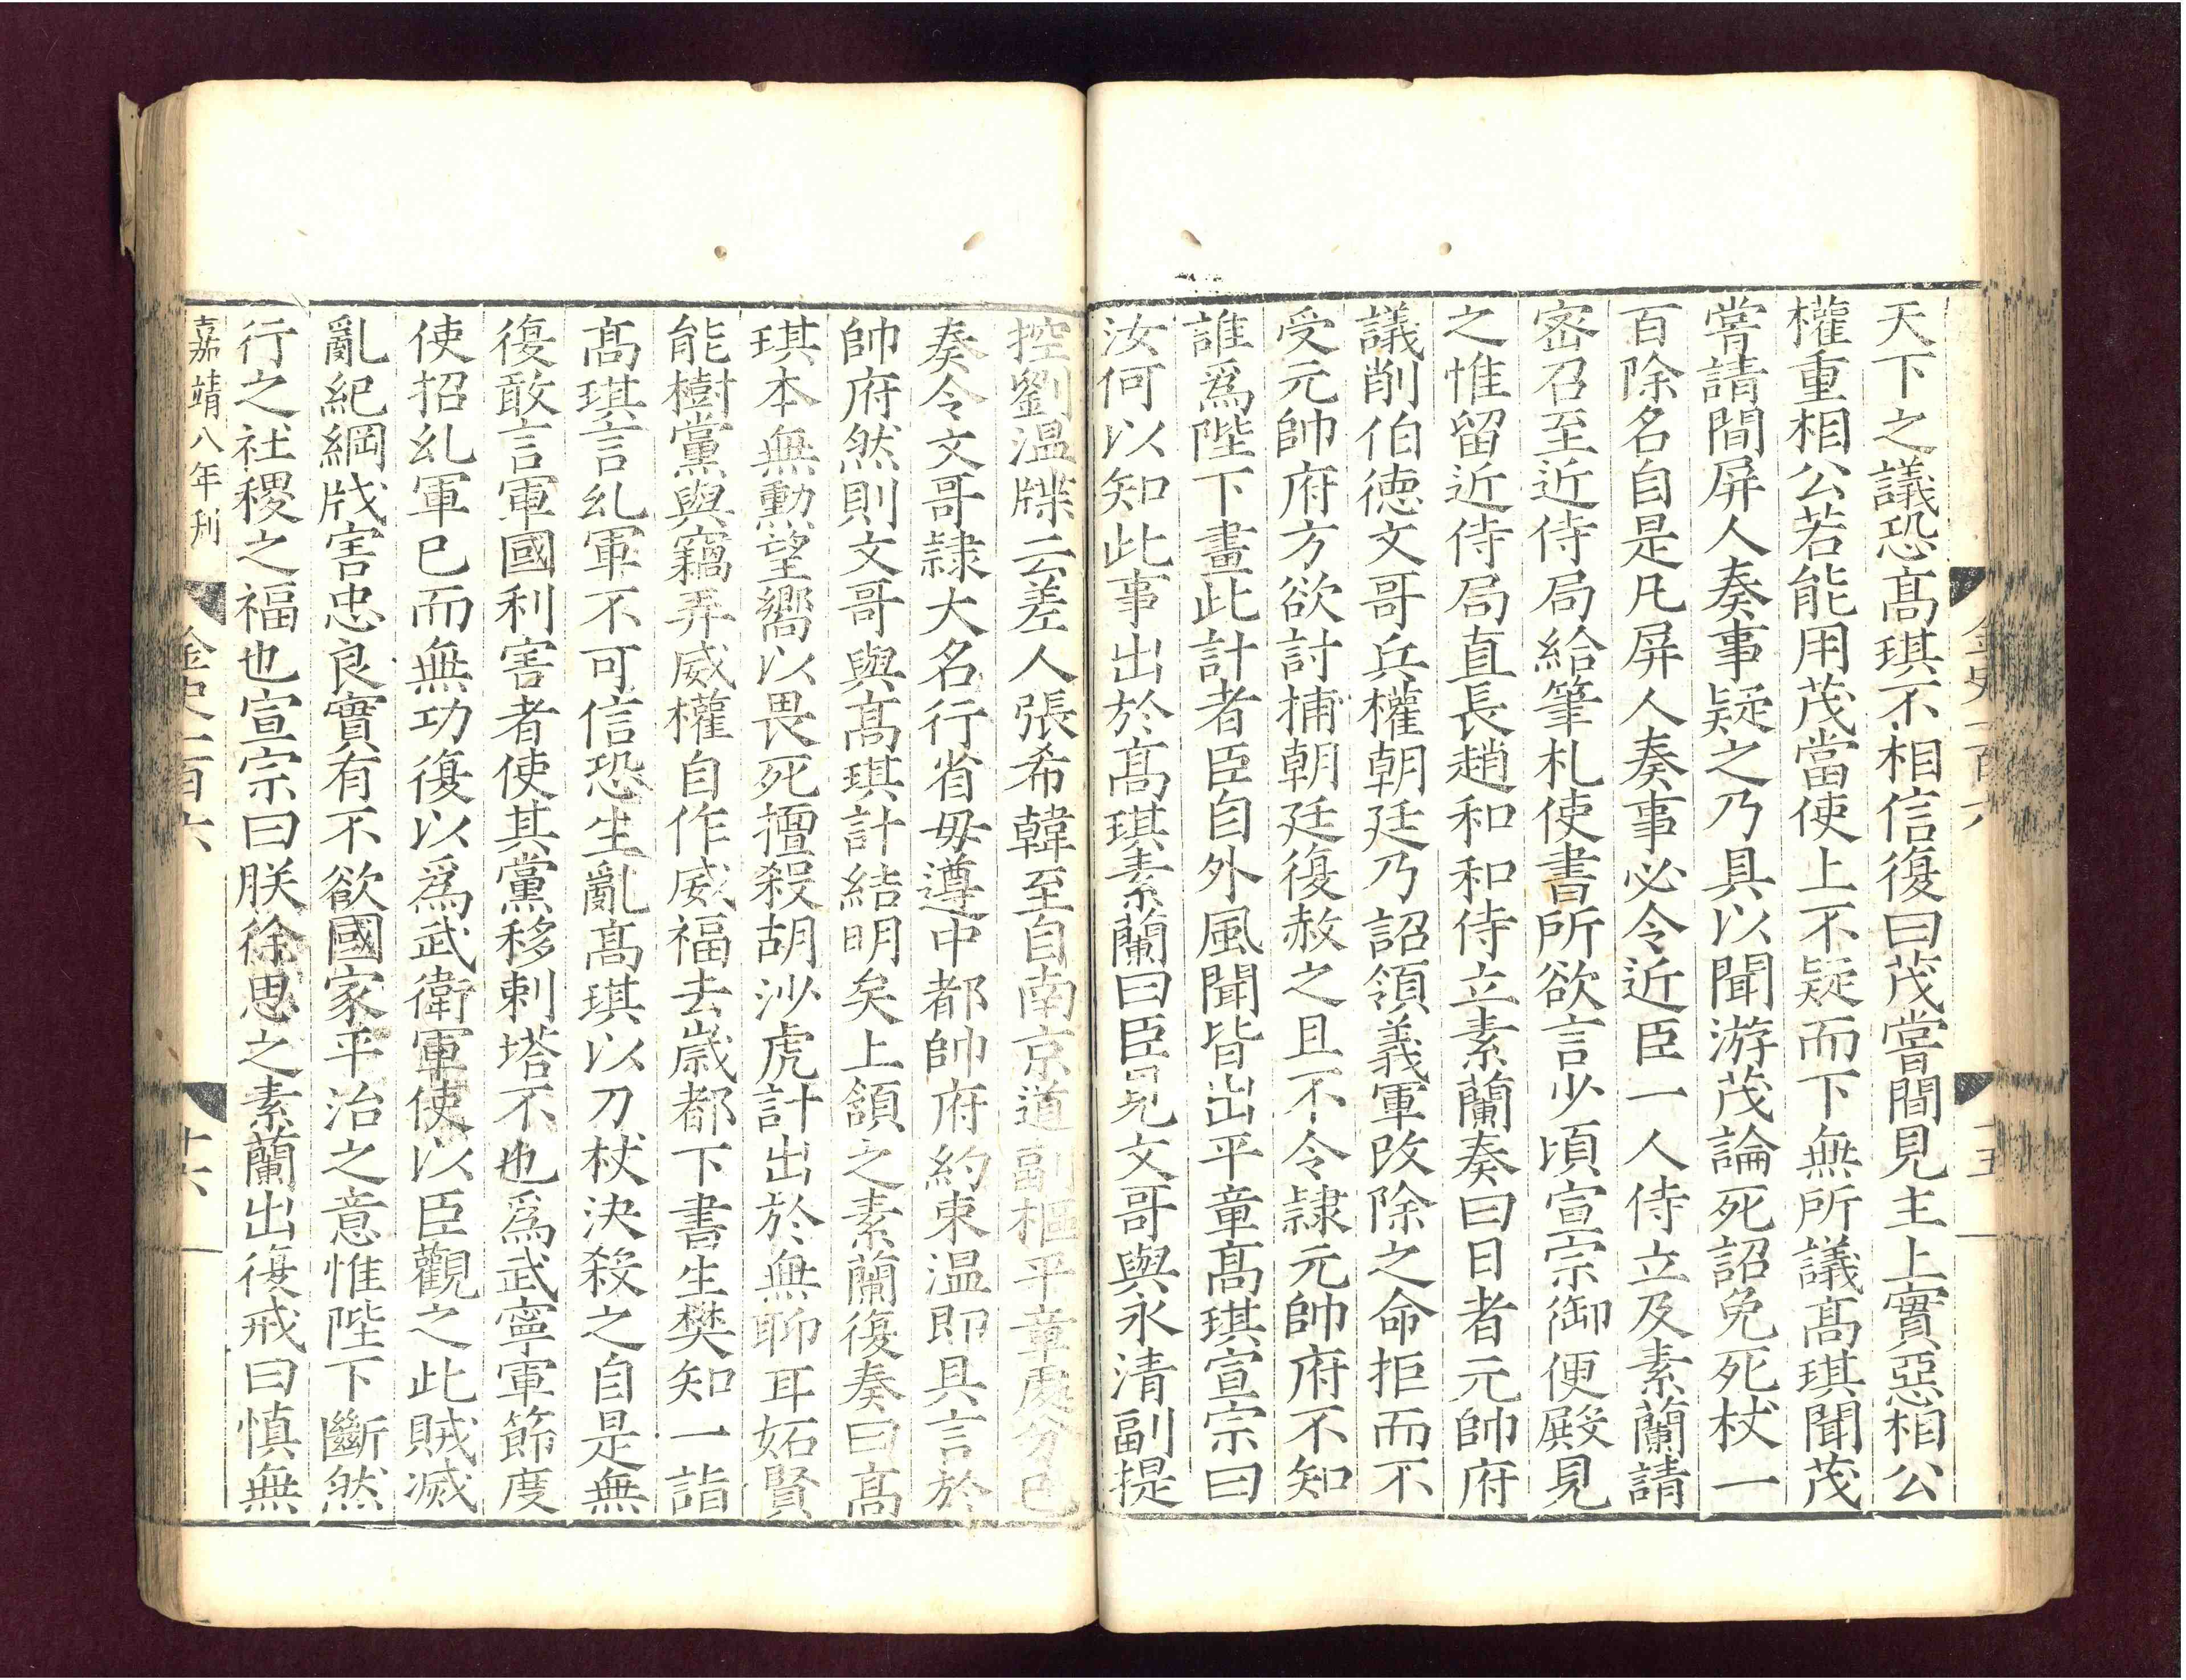 天下之議恐髙琪不相信復曰茂嘗間見主上實惡相公
權重相公若能用茂當使上不疑而下無所議髙琪聞茂
嘗請間屏人奏事疑之乃具以聞游茂論死詔免死杖一
百除名自是凡屏人奏事必令近臣一人侍立及素蘭請
宻召至近侍局給筆札使書所欲言少頃宣宗御便殿見
之惟留近侍局直長趙和和侍立素蘭奏曰日者元帥府
議削伯徳文哥兵權朝廷乃詔領義軍改除之命拒而不
受元帥府方欲討捕朝廷復赦之且不令隷元帥府不知
誰爲陛下畫此計者臣自外風聞皆出平章髙琪宣宗曰
汝何以知此事出於髙琪素蘭曰臣見文哥與永清副提
控劉温牒云差人張希韓至自南京道副樞平章處分已
奏令文哥隷大名行省毋遵中都帥府約束温即具言於
帥府然則文哥與髙琪計結明矣上頷之素蘭復奏曰髙
琪本無勳望嚮以畏死擅殺胡沙虎計出於無聊耳妬賢
能樹黨與竊弄威權自作威福去嵗都下書生樊知一詣
髙琪言乣軍不可信恐生亂髙琪以刀杖決殺之自是無
復敢言軍國利害者使其黨移剌塔不也爲武寧軍節度
使招乣軍已而無功復以爲武衛軍使以臣觀之此賊滅
亂紀綱戕害忠良實有不欲國家平治之意惟陛下斷然
行之社稷之福也宣宗曰朕徐思之素蘭出復戒曰慎無
嘉靖八年刋
金史一百六
十六